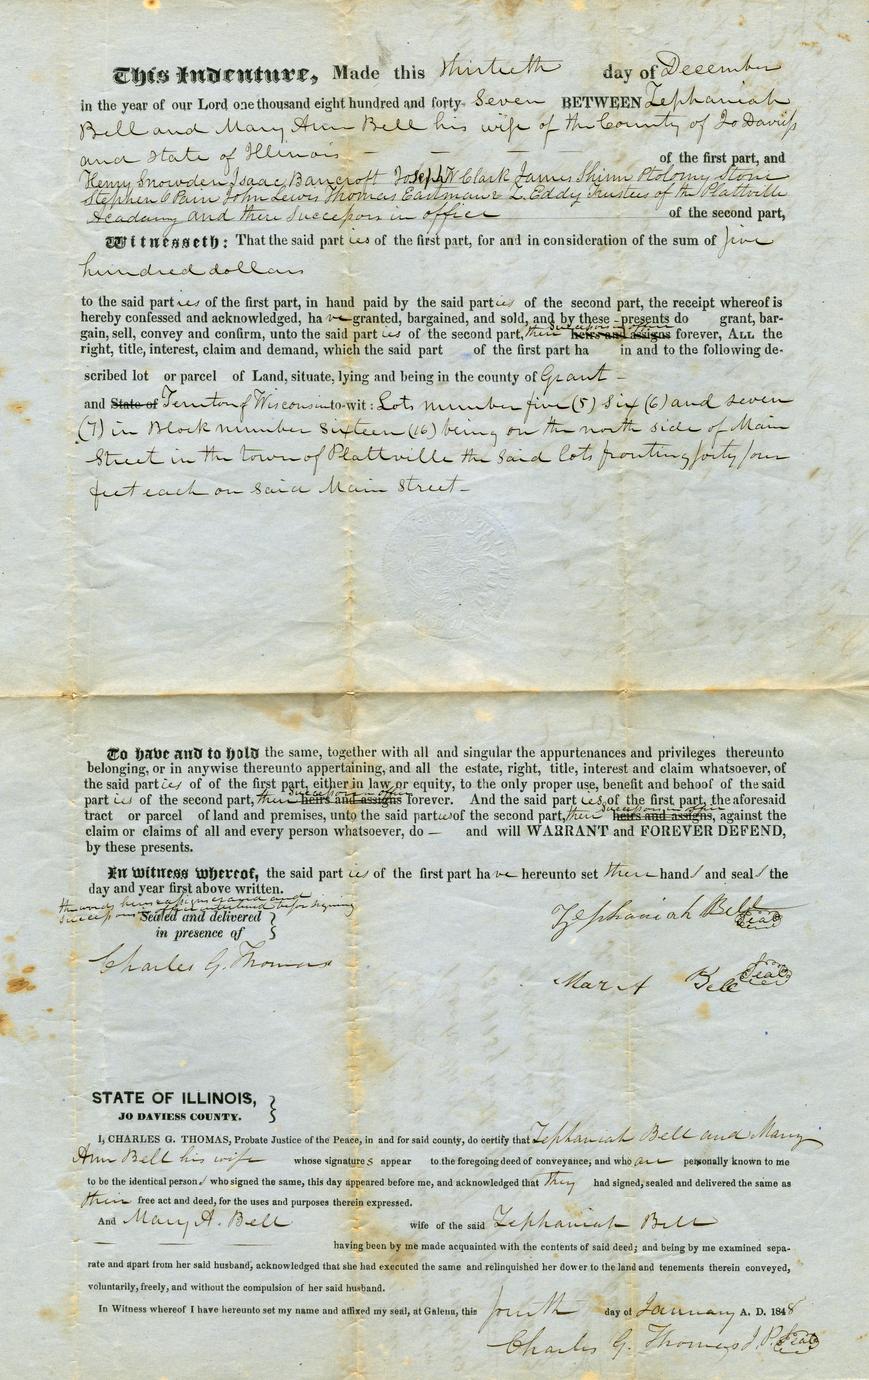 This Indenture, Made this thirtieth day of December
in the year of our Lord one thousand eight hundred and forty-Seven BETWEEN Zephaniah
Bell and Mary Ann Bell his wife of the County of Jo Daviess
and State of Illinois of the first part, and
Henry Snowden Isaac Bancroft Joseph W Clark James Shinn Ptolomy Stone
Stephen O Pain John Lewis Thomas Eastman & L. Eddy Trustees of the Plattville
Academy and there Successors in office of the second part,
Witnesseth: That the said parties of the first part, for and in consideration of the sum of five
hundred dollars
to the said parties of the first part, in hand paid by the said parties of the second part, the receipt whereof is
hereby confessed and acknowledged, have granted, bargained, and sold, and by these presents do grant, bar-
gain, sell, convey and confirm, unto the said parties of the second part, their successors in office heirs and assigns forever, ALL the
right, title, interest, claim and demand, which the said part of the first part ha in and to the following de-
scribed lot or parcel of Land, situate, lying and being in the county of Grant -
and State of Territory of Wisconsin to-wit: Lots number five (5) Six (6) and seven
(7) in Block number Sixteen (16) being on the north side of Main
Street in the town of Plattville the said lots fronting forty four
feet each on said Main Street -
To have and to hold the same, together with all and singular the appurtenances and privileges thereunto
belonging, or in anywise thereunto appertaining, and all the estate, right, title, interest and claim whatsoever, of
the said parties of of the first part, either in law or equity, to the only proper use, benefit and behoof of the said
parties of the second part, their successors in office heirs and assigns forever. And the said parties of the first part, the aforesaid
tract or parcel of land and premises, unto the said parties of the second part, their successors in office heirs and assigns, against the
claim or claims of all and every person whatsoever, do — and will WARRANT and FOREVER DEFEND,
by these presents.
In witness whereof, the said parties of the first part have hereunto set their hands and seals the
day and year first above written.
the words heirs assigns erased and
successors in office interlined before signing
Sealed and delivered
in presence of
Charles G. Thomas
Zephaniah Bell Seal
Mar A Bell Seal
STATE OF ILLINOIS,
JO DAVIESS COUNTY.
I, CHARLES G. THOMAS, Probate Justice of the Peace, in and for said county, do certify that Zephaniah Bell and Mary
Ann Bell his wife whose signatures appear to the foregoing deed of conveyance, and who are personally known to me
to be the identical persons who signed the same, this day appeared before me, and acknowledged that they had signed, sealed and delivered the same as
their free act and deed, for the uses and purposes therein expressed.
And Mary A. Bell wife of the said Zephaniah Bell
having been by me made acquainted with the contents of said deed; and being by me examined sepa-
rate and apart from her said husband, acknowledged that she had executed the same and relinquished her dower to the land and tenements therein conveyed,
voluntarily, freely, and without the compulsion of her said husband.
In Witness whereof I have hereunto set my name and affixed my seal, at Galena, this fourth day of January A. D. 1848
Charles G. Thomas J. P. Seal